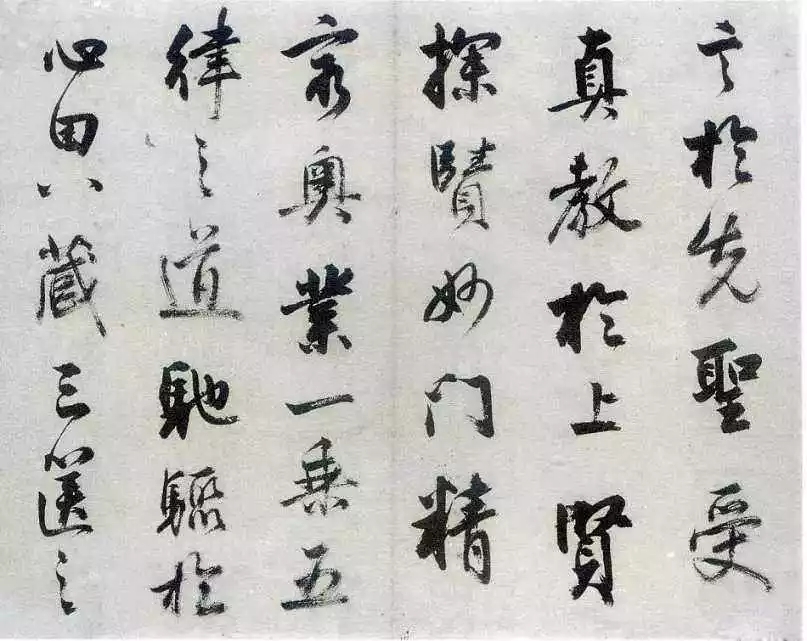 言於先聖受
真教於上賢
探賾妙門精
窮奧業一乘五
律之道馳驟於
心田八藏三篋之